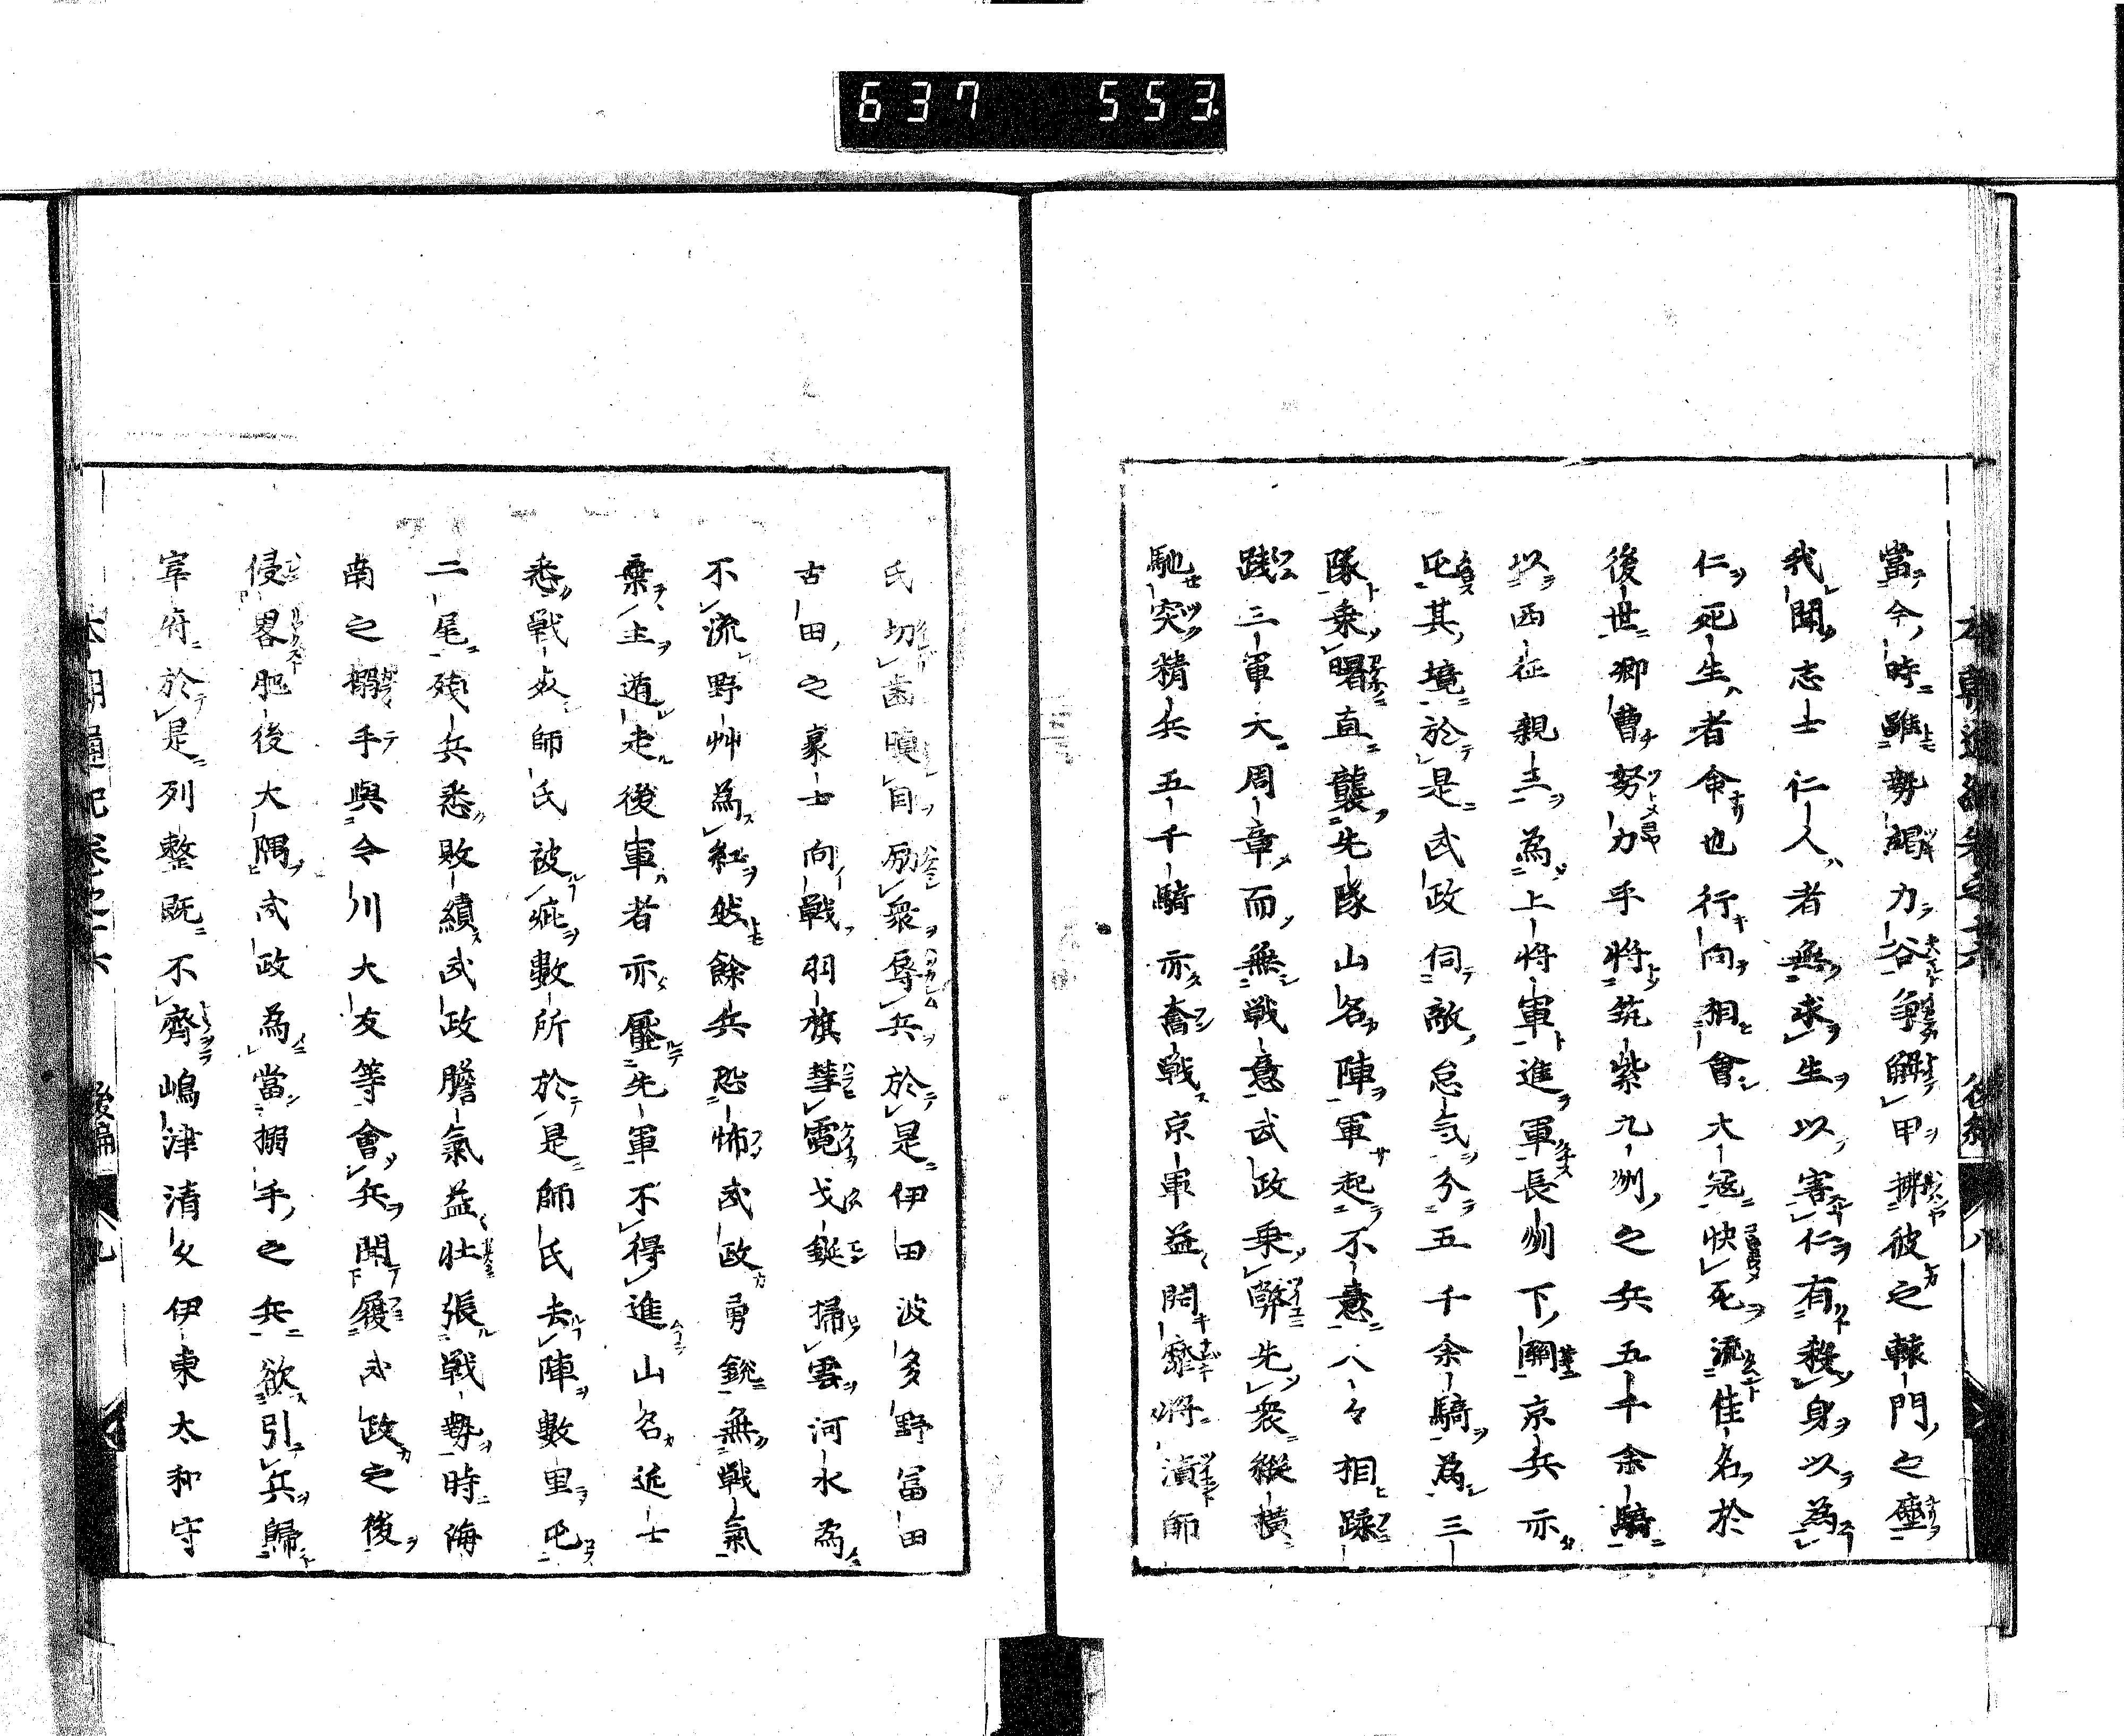 637 553
當今時雖勢竭力谷爭解甲拂彼之轅門之塵
我聞志士仁人者無求生以害仁有殺身以為
仁死生者命也行向相會大冦快死流佳名於
後世卿曹努力乎將筑紫九州之兵五千余騎
以西征親王為上將軍進軍長州下關京兵亦
屯其境於是武政伺敵怠氣分五千余騎為三
隊乗曙直襲先隊山名陣軍起不意人々相蹂
踐三軍大周章而無戰意武政乗弊先衆縱橫
馳突精兵五千騎亦奮戰京軍益閧靡將潰師
氏切齒瞋目励衆辱兵於是伊田波多野冨田
古田之豪士向戰羽旗彗霓戈鋋掃雲河水為
不流野艸為紅然餘兵恐怖武政勇銳無戰氣
棄主遁走後軍者亦壓先軍不得進山名近士
悉戰歿師氏被疵數所於是師氏去陣數里屯
二尾殘兵悉敗績武政膽氣益壯張戰勢時海
南之搦手與今川大友等會兵聞履武政之後
侵畧肥後大隅武政為當搦手之兵欲引兵歸
宰府於是列整既不齊嶋津清久伊東大和守